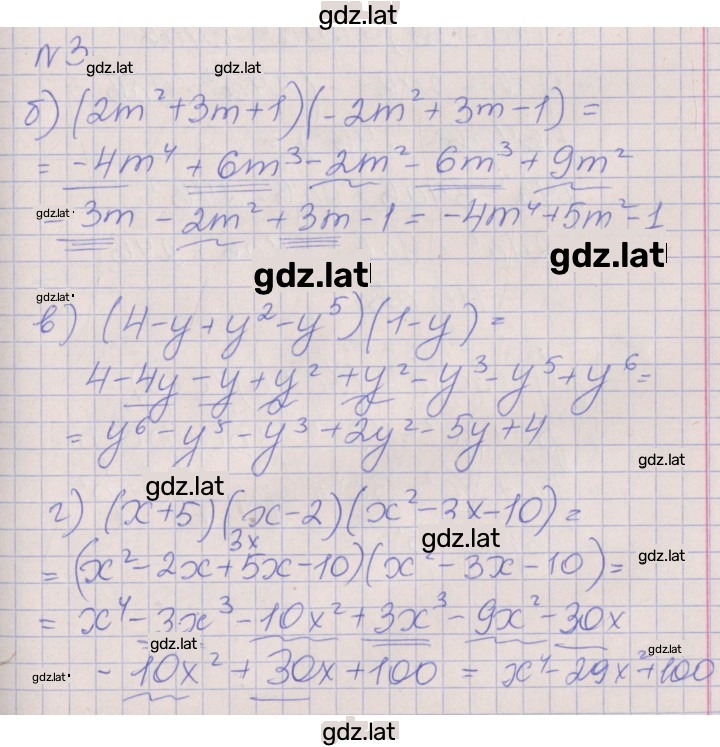 gdz.lat
N3
gdz.lat gdz.lat
б) (2m² + 3m + 1)(-2m² + 3m - 1) =
= -4m⁴ + 6m³ - 2m² - 6m³ + 9m²
gdz.lat - 3m - 2m² + 3m - 1 = -4m⁴ + 5m² - 1
gdz.lat gdz.lat
gdz.lat
в) (4 - y + y² - y⁵)(1 - y) =
4 - 4y - y + y² + y² - y³ - y⁵ + y⁶ =
= y⁶ - y⁵ - y³ + 2y² - 5y + 4
gdz.lat
gdz.lat
г) (x + 5)(x - 2)(x² - 3x - 10) =
3x gdz.lat
= (x² - 2x + 5x - 10)(x² - 3x - 10) = gdz.lat
= x⁴ - 3x³ - 10x² + 3x³ - 9x² - 30x
gdz.lat gdz.lat
gdz.lat - 10x² + 30x + 100 = x⁴ - 29x² + 100
gdz.lat